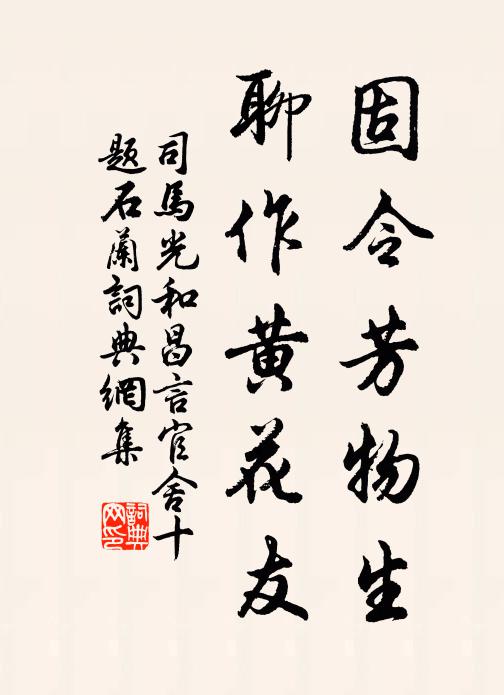 固令芳物生
聊作黄花友
司馬光和昌言官舍十
題石蘭詞典網集
詞典网印